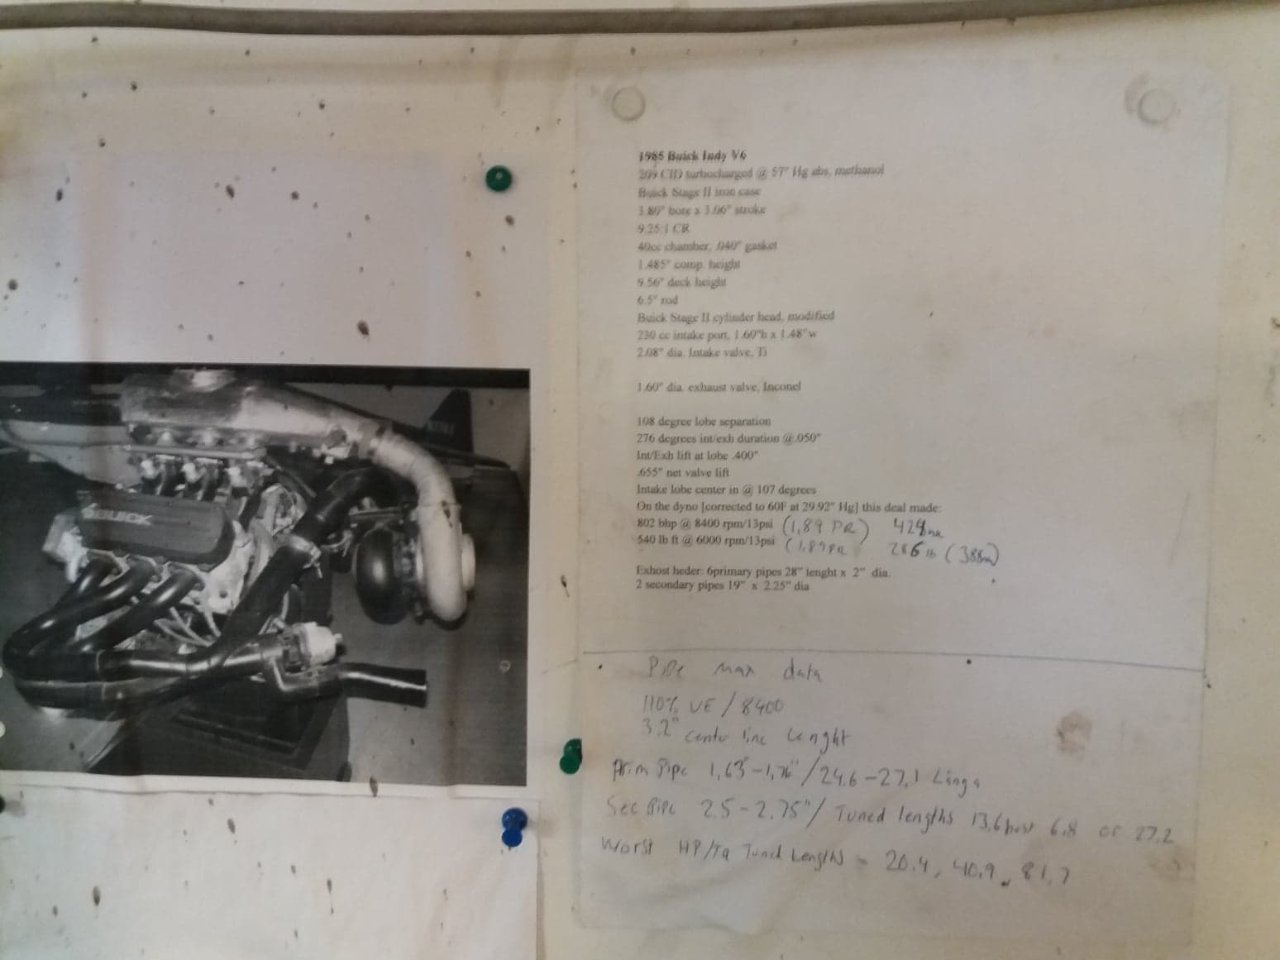 BUICK
1985 Buick Indy V6
209 CID turbocharged @ 57" Hg abs, methanol
Buick Stage II iron case
3.80" bore x 3.06" stroke
9.25:1 CR
40cc chamber, .040" gasket
1.485" comp. height
9.56" deck height
6.5" rod
Buick Stage II cylinder head, modified
230 cc intake port, 1.60"h x 1.48"w
2.08" dia. Intake valve, Ti
1.60" dia. exhaust valve, Inconel
108 degree lobe separation
276 degrees int/exh duration @.050"
Int/Exh lift at lobe .400"
.655" net valve lift
Intake lobe center in @ 107 degrees
On the dyno [corrected to 60F at 29.92" Hg] this deal made:
802 bhp @ 8400 rpm/13psi (1,89 PR)
540 lb ft @ 6000 rpm/13psi (1,89 PR 286 lb
Exhost heder: 6primary pipes 28" lenght x 2" dia.
2 secondary pipes 19" x 2.25" dia
Pipe max data
110% VE / 8400
3.2" center line Lenght
Prim Pipe 1,63-1,76"/24.6-27,1 Långa
Sec Pipe 2.5-2.75"/ Tuned lengths 13,6 best 6.8 or 27.2
Worst HP/Tq Tuned Lengths = 20.4, 40.9, 81,7